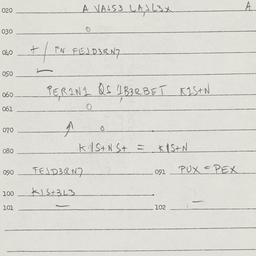 020 A VA1S3 LA,3L3X A
030 0
040 + / PN FE1D3RN7
050 —
060 PER2N1 QS 1B3RBET K1S+N
061 0
070 0
080 K1S+NS+ = K1S+N
090 FE1D3RN7 091 PUX = PEX
100 K1S+3L3
101 — 102 —